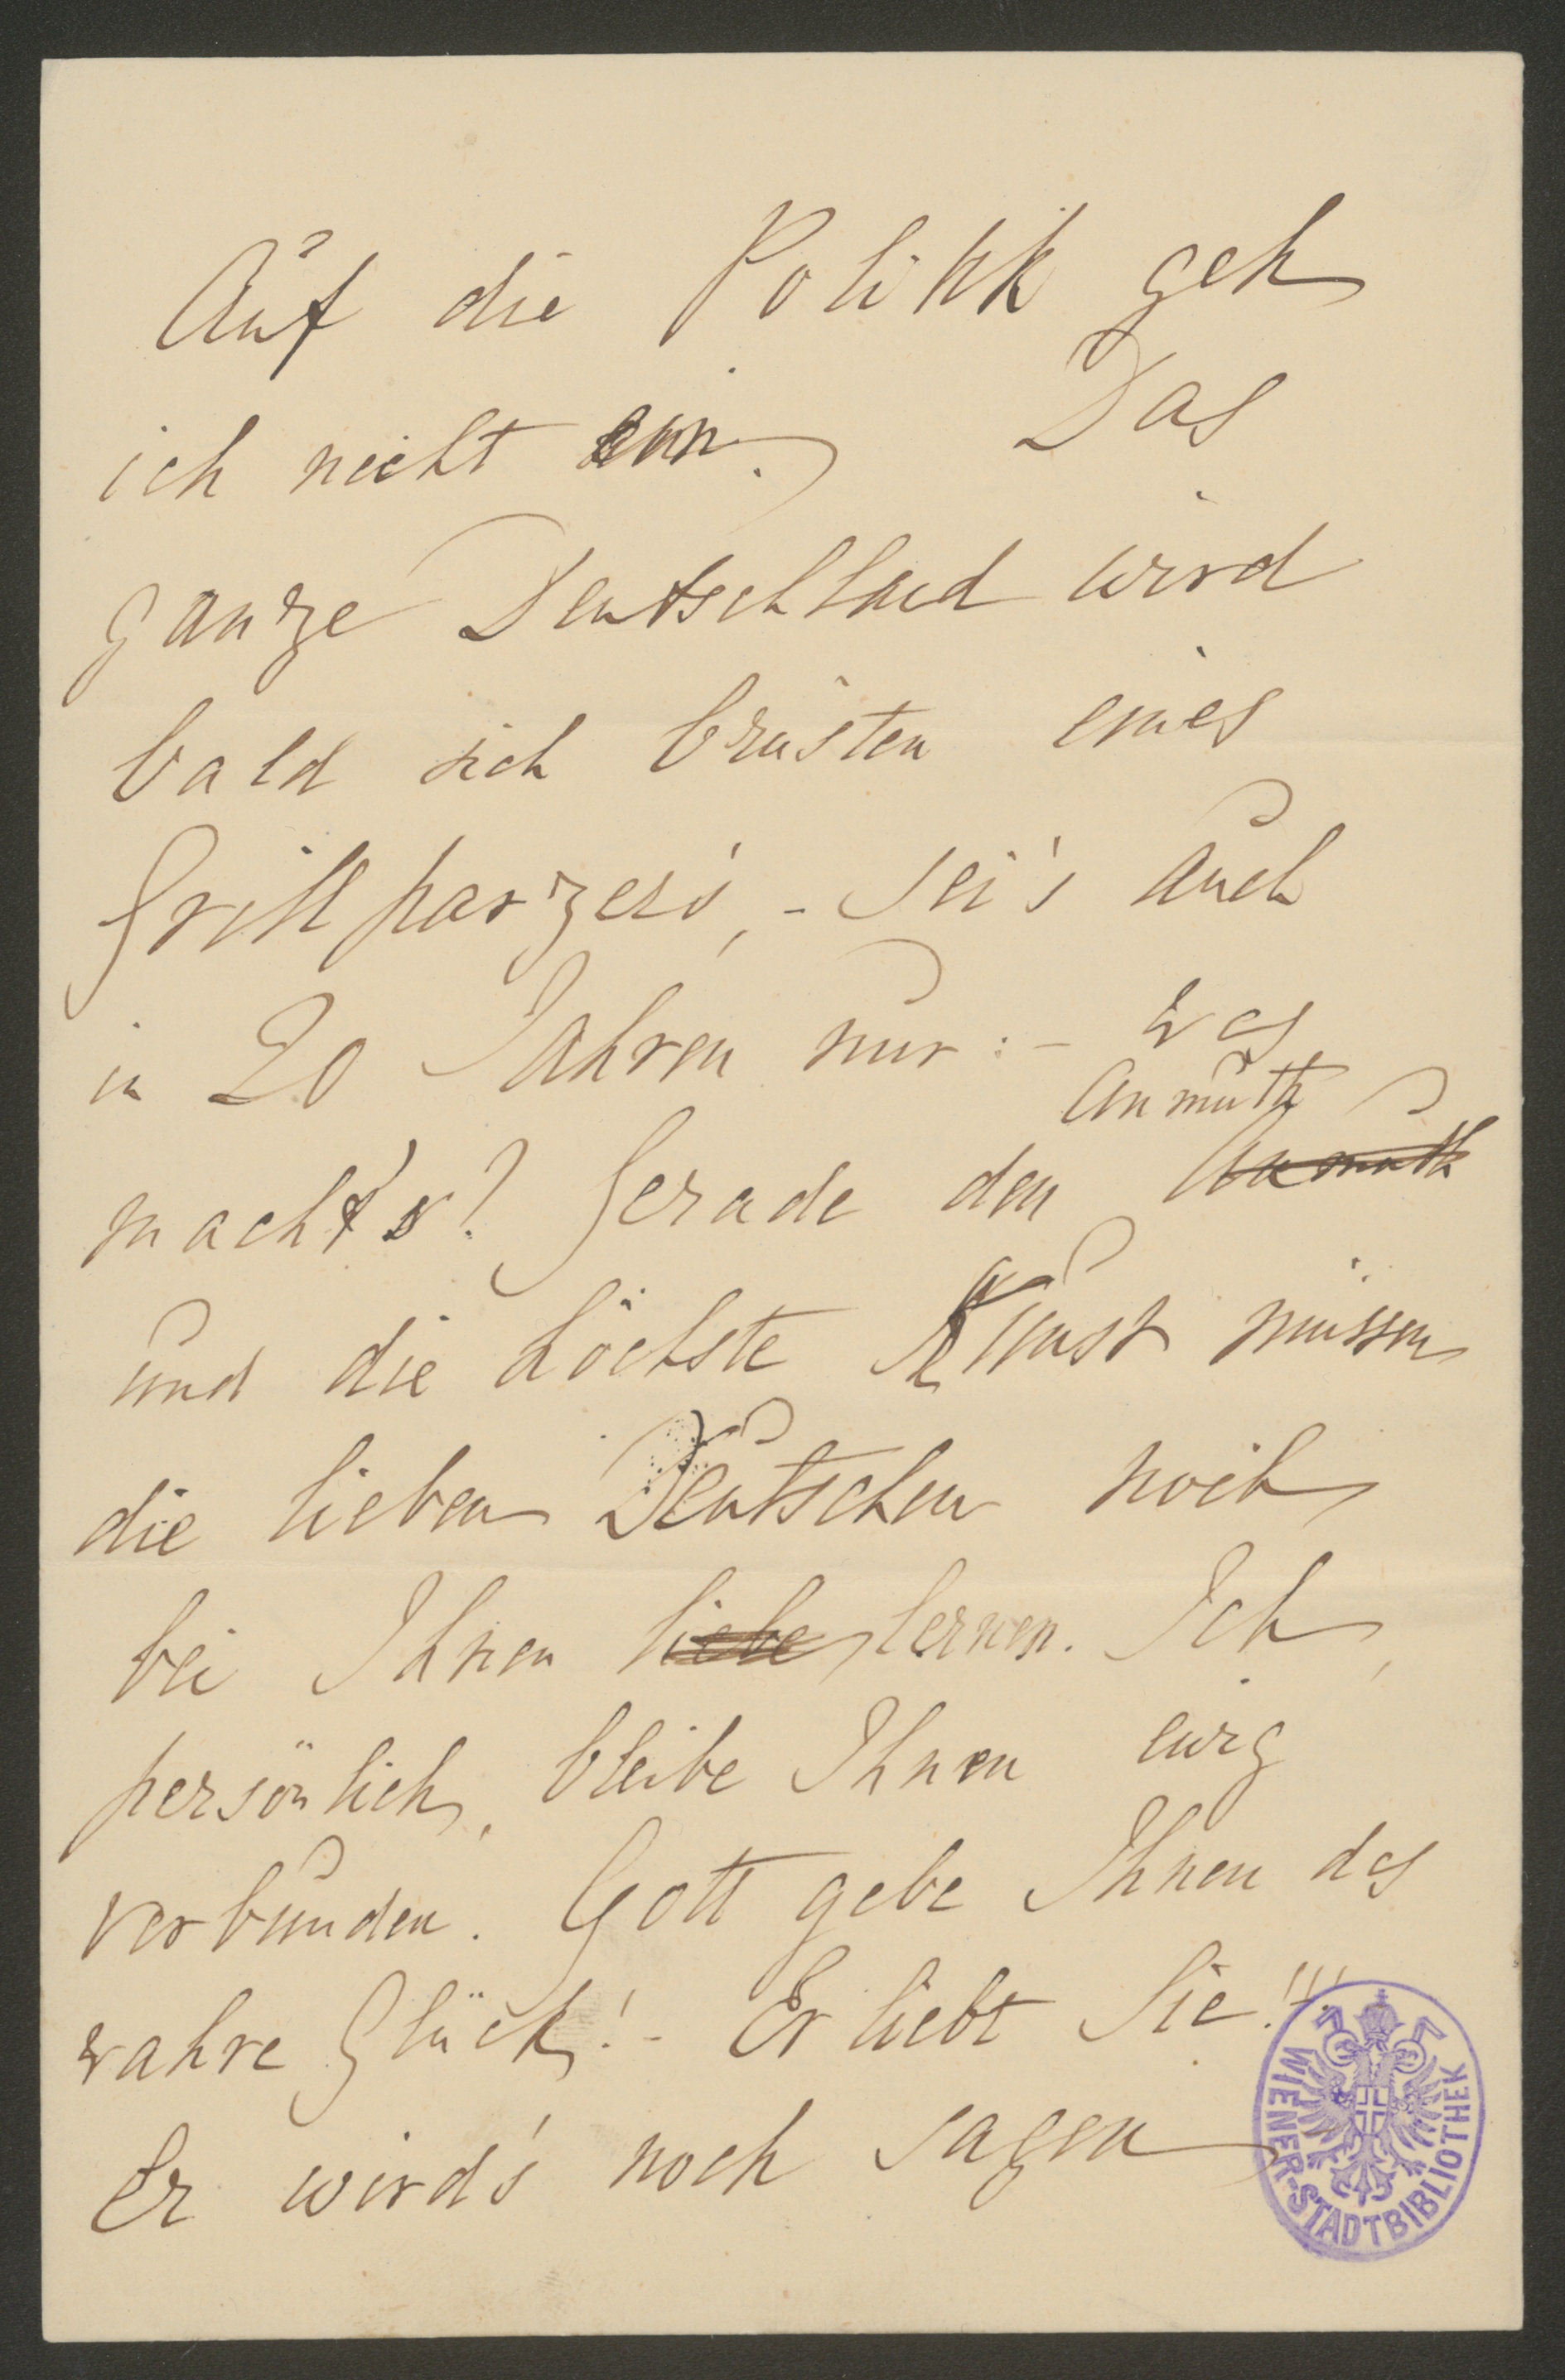 Auf die Politik geh
ich nicht ein. Das
ganze Deutschland wird
bald sich brüsten eines
Grillparzers', - sei's auch
in 20 Jahren nur: - was
Anmuth
macht's? Gerade den Anmuth
und die höchste Kunst müssen
die lieben Deutschen noch
bei Ihnen liebe lernen. Ich,
persönlich, bleibe Ihnen ewig
verbunden. Gott gebe Ihnen das
wahre Glück! - Er liebt Sie!!!
Er wird's noch sagen
WIENER-STADTBIBLIOTHEK